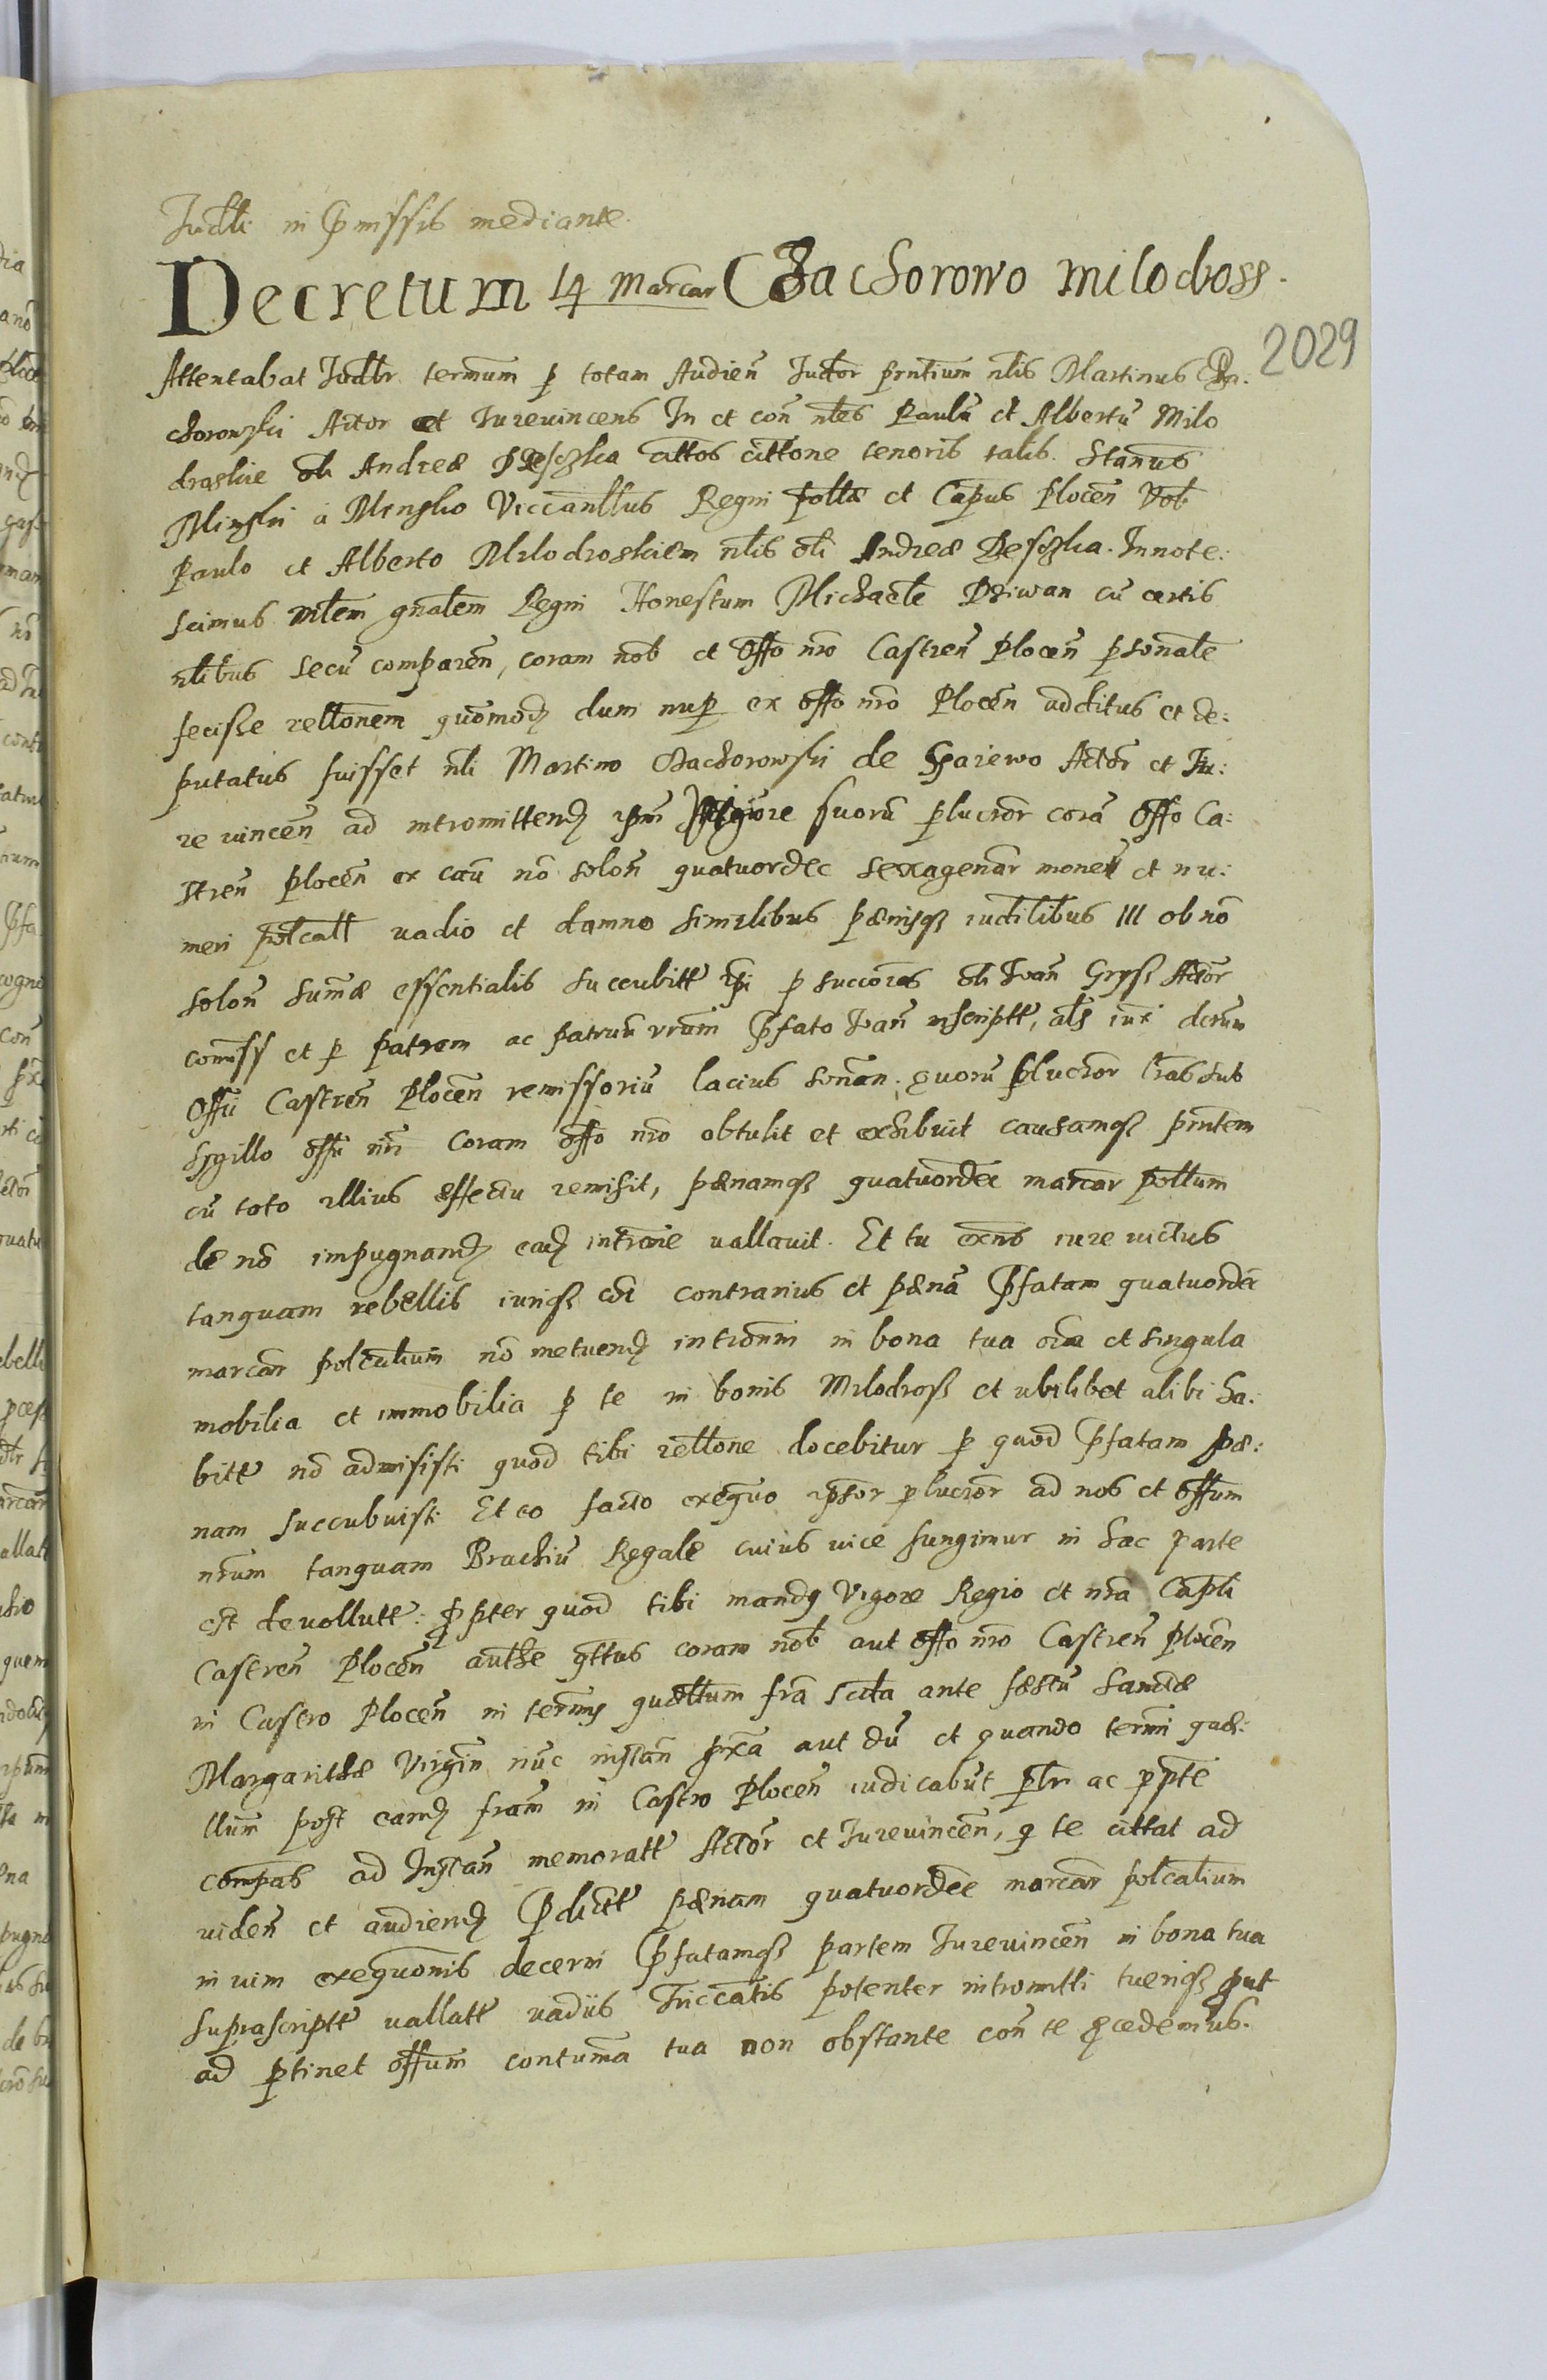 Iudli in Pmissis mediante.
Decretum 14 Marcar Chachorowo milodross.
2029
Attentabat Iudlr termum p totam Audien Iudior pntium nlis Martinus Cha:
chorowski Actor et Iurevincens In et con nles Paulu et Albertu Milo
droskie oli Andreæ cittos cittone tenoris talis. Stanus
Minski a Minsko Viccanllus Regni pollæ et Capus Plocen Vob
Paulo et Alberto Milodroskiem nlis oli Andreæ Innote:
scimus mlem gnalem Regni Honestum Michaele Dziwan cu certis
nlibus secu comparen, coram nob et Offo nro Castren Plocen psonale
fecisse rellonem quomodz dum nup ex offo nro Plocen additus et de:
putatus fuisset nli Martino Chachorowski de Actor et Iu:
re vincen ad intromittendz ipm vigore suoru plucror cora Offo Ca:
stren Plocen ex cau no solon quatuordec sexagenar monet et nu:
meri polcall vadio et damno similibus pænisqz iudlibus III ob no
solon sumæ essentialis succubitt ipi p succores oli Ioan Gryss Actor
comiss et p patrem ac patruu vrum Pfato Ioan inscriptt, als iuxt decrum
Offii Castren Plocen remissoriu lacius sonan; quoru plucror lras sub
sygillo offii nri coram offo nro obtulit et exhibuit causamqz pntem
cu toto illius effectu remisit, pænamqz quatuordec marcar pollum
de no impugnandz eadz introne vallavit. Et tu exns iure victus
tanquam rebellis iurisqz coi contrarius et pæna Pfatam quatuordec
marcar polcalium no metuendz intronm in bona tua oia et singula
mobilia et immobilia p te in bonis Milodross et ubilibet alibi ha:
bitt no admisisti quod tibi rellone docebitur p quod Pfatam pæ:
nam succubuisti Et eo facto exequo ipsor plucror ad nos et offum
nrum tanquam Brachiu Regale cuius vice fungimur in hac parte
est devollutt: ppter quod tibi mandg Vigore Regio et nra Capli
Castren Plocen authe qttus coram nob aut offo nro Castren Plocen
in Castro Plocen in termis quællum fra scda ante festu Sanctæ
Margarithæ Virgin nuc instan pxa aut du et quando termi quæ:
llum post eandz fram in Castro Plocen iudicabut plr ac ppte
compas ad Instan memoratt Actor et Iurevincen, q te cittat ad
viden et audiendz Pdictt pænam quatuordec marcar polcalium
in vim exequonis decerni Pfatamqz partem Iurevincen in bona tua
suprascriptt vallatt vadiis Triccatis potenter intromitti tueriqz put
ad ptinet offum contuma tua non obstante con te pcedemus.